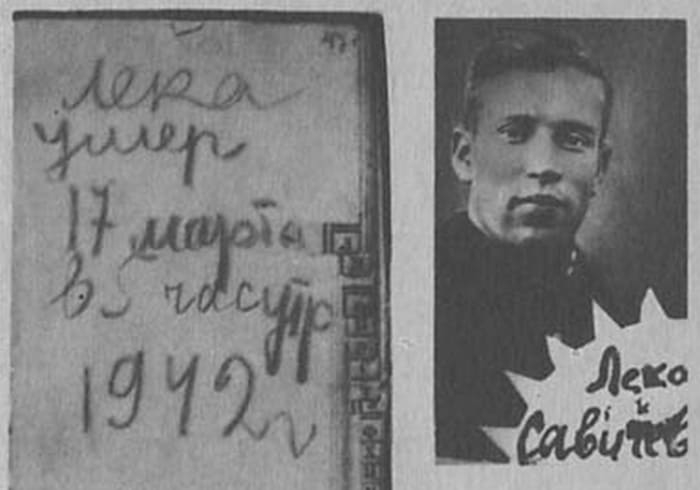 Лека
умер
17 марта
в 5 часутр
1942 г
Лека
Савичев